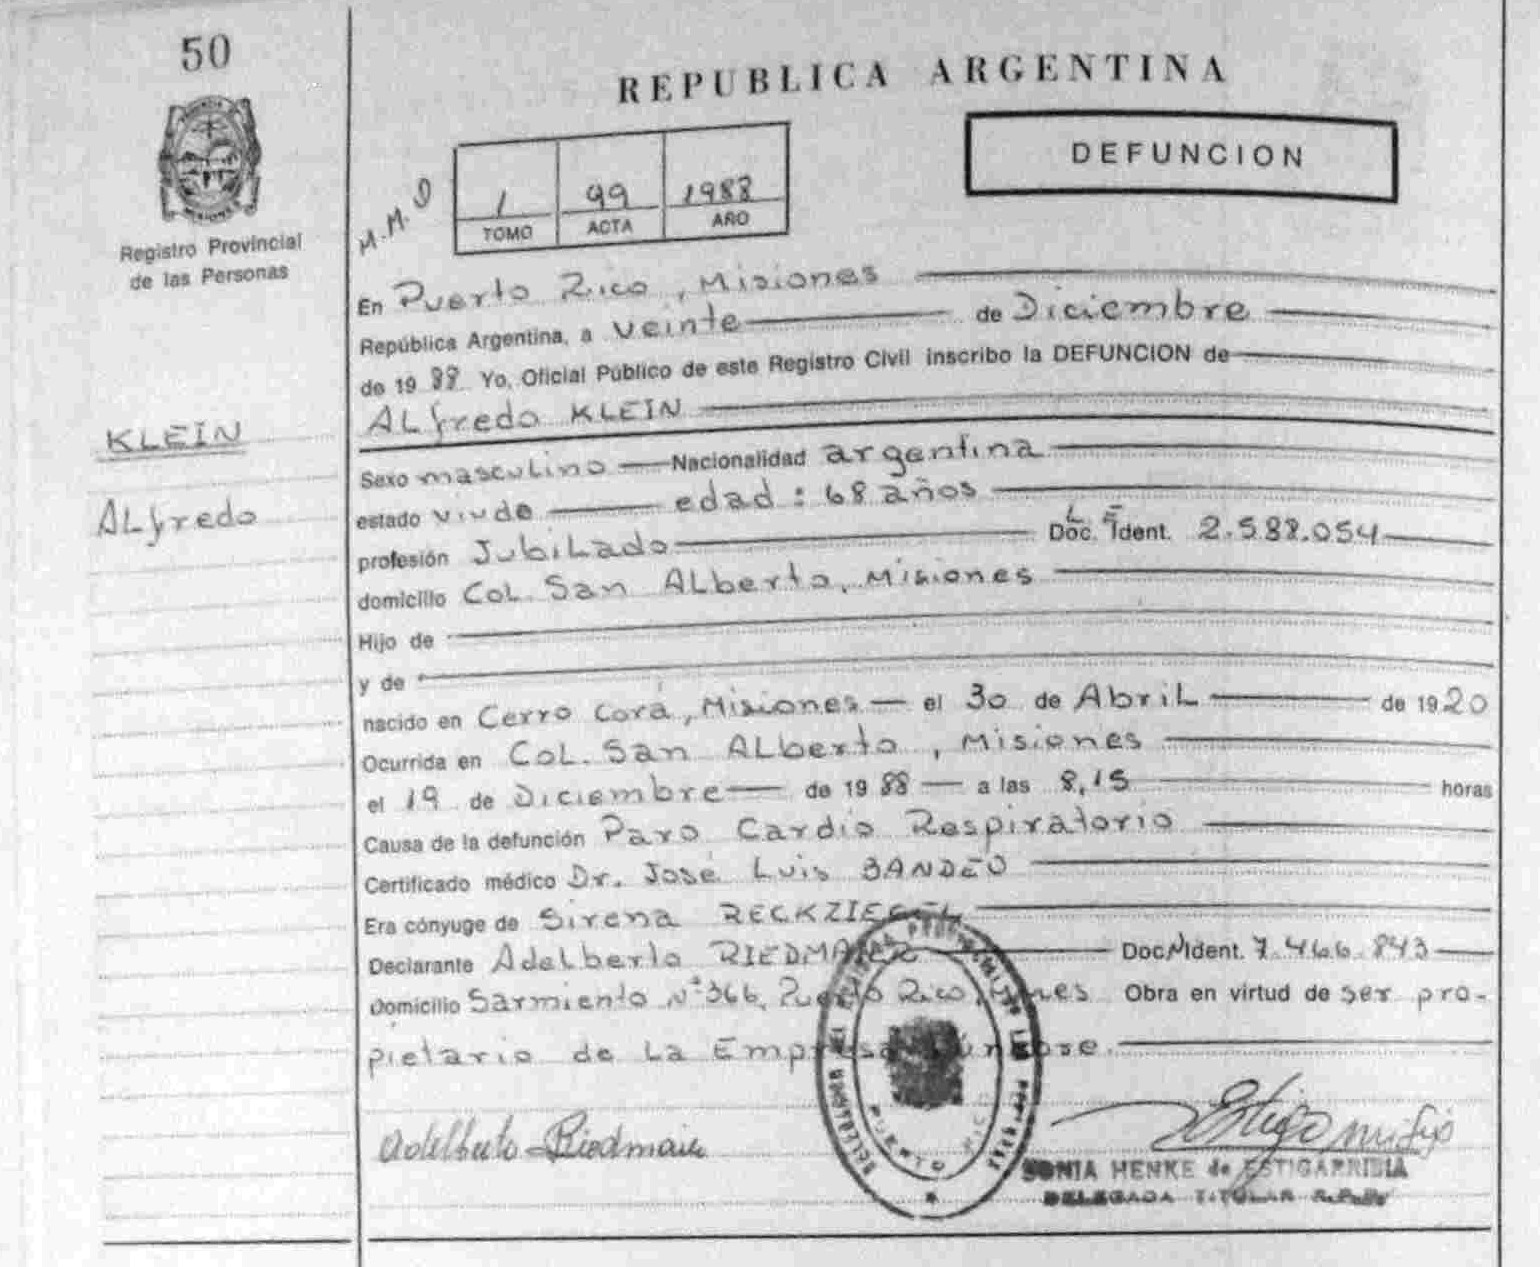 50
REPUBLICA ARGENTINA
DEFUNCION
M.M.D
1 99 1988
TOMO ACTA AÑO
Registro Provincial
de las Personas
KLEIN
Alfredo
En Puerto Rico, Misiones
República Argentina, a veinte de Diciembre
de 1988 Yo, Oficial Público de este Registro Civil inscribo la DEFUNCION de
ALfredo KLEIN
Sexo masculino Nacionalidad argentina
estado viudo edad: 68 años
profesión Jubilado L E Doc. Ident. 2.588.054
domicilio Col. San Alberto, Misiones
Hijo de
y de
nacido en Cerro Corá, Misiones el 30 de Abril de 1920
Ocurrida en Col. San Alberto, Misiones
el 19 de Diciembre de 1988 a las 8,15 horas
Causa de la defunción Paro Cardio Respiratorio
Certificado médico Dr. José Luis BANDEO
Era cónyuge de Sirena RECKZIEGEL
Declarante Adelberto RIEDMAIER Doc N Ident. 7.466.843
Domicilio Sarmiento N° 366, Puerto Rico, Mnes Obra en virtud de ser pro-
pietario de La Empresa Fúnebre.
Adelberto Riedmaier
PUERTO RICO
SONIA HENKE de ESTIGARRIBIA
DELEGADA TITULAR R.P.P.